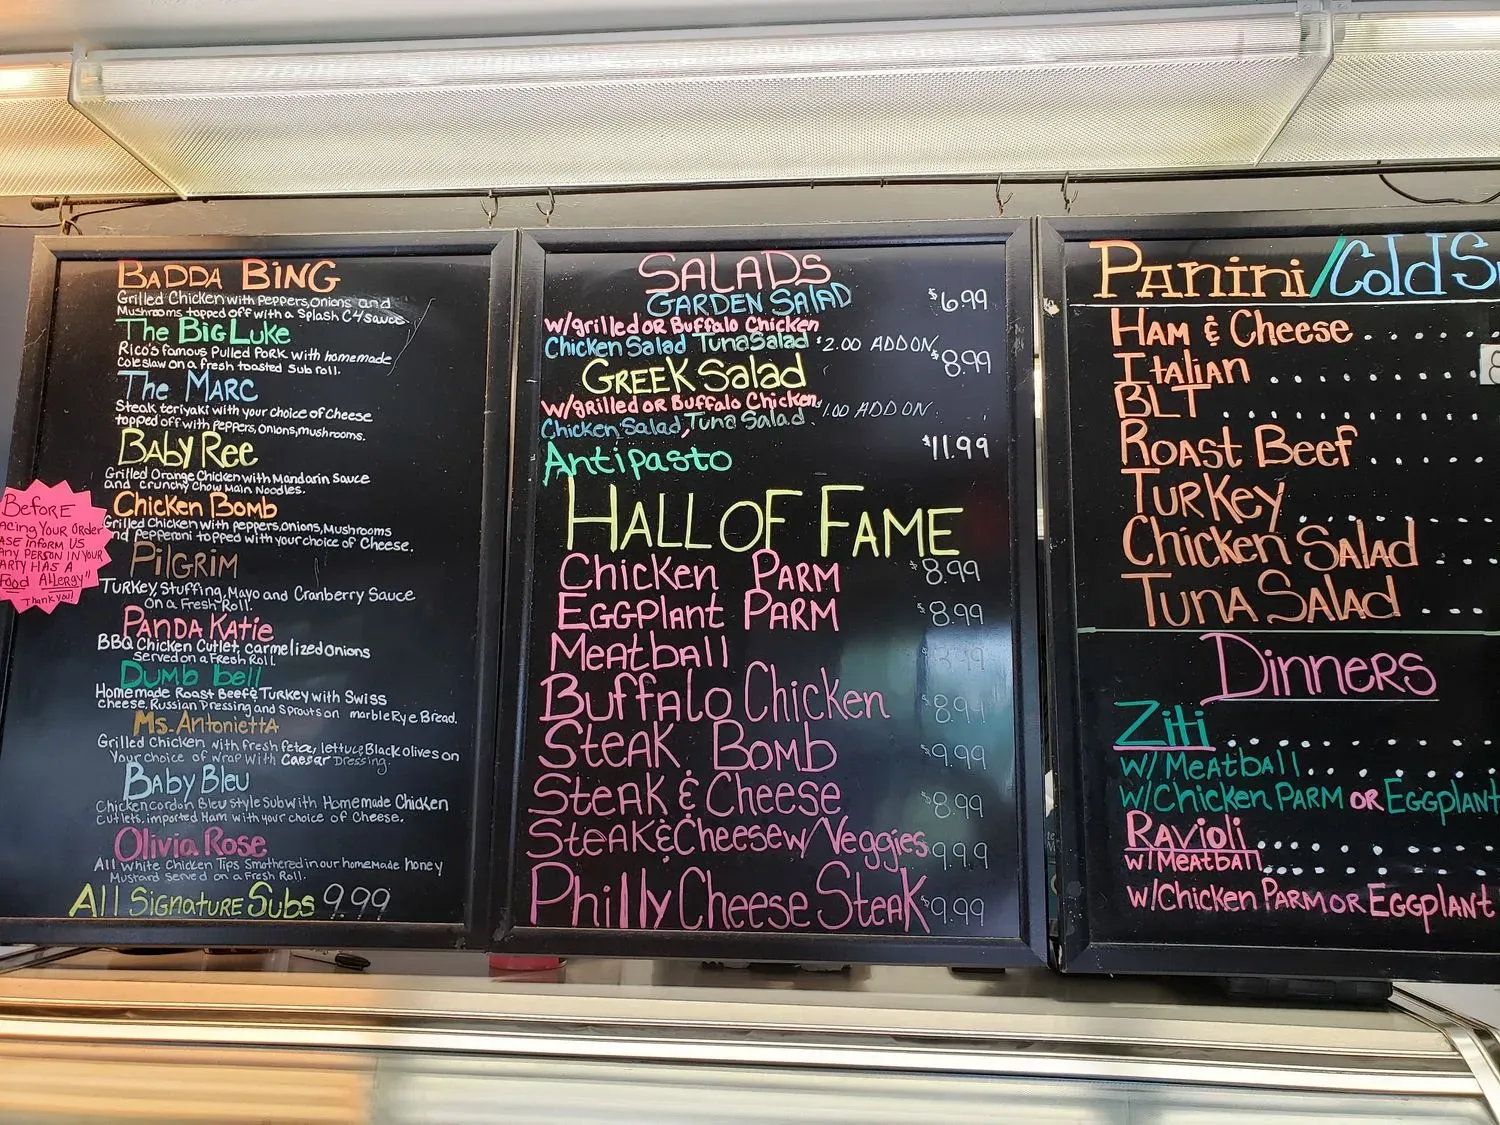 BADDA BING
Grilled Chicken with Peppers, Onions and
Mushrooms topped off with a Splash C4 sauce
The Big Luke
Rico's famous Pulled Pork with homemade
Coleslaw on a fresh toasted Sub roll.
The MARC
Steak teriyaki with your choice of Cheese
topped off with Peppers, onions, mushrooms.
BABY Ree
Grilled Orange Chicken with Mandarin Sauce
and Crunchy Chow Main Noodles.
Chicken Bomb
Grilled Chicken with peppers, onions, Mushrooms
and Pepperoni topped with your choice of Cheese.
PILGRIM
Turkey, Stuffing, Mayo and Cranberry Sauce
on a Fresh Roll.
PANDA KATIE
BBQ Chicken Cutlet, carmelized onions
Served on a Fresh Roll.
Dumb bell
Homemade Roast Beef & Turkey with Swiss
cheese, Russian Dressing and Sprouts on marble Rye Bread.
Ms. AntoniettA
Grilled Chicken with Fresh feta, lettuce, Black olives on
Your choice of wrap with Caesar Dressing.
Baby Bleu
Chicken cordon Bleu style Sub with Homemade Chicken
Cutlets, imported Ham with your choice of Cheese.
Olivia Rose
All White Chicken Tips Smothered in our homemade honey
Mustard Served on a Fresh Roll.
All Signature Subs 9.99
BeFORE
acing Your Order
ASE inform US
any PERSON IN YOUR
ARTY HAS A
Food Allergy"
Thank you!
SALADS
GARDEN SALAD $6.99
W/grilled OR Buffalo Chicken
Chicken Salad Tuna Salad $2.00 ADD ON
GREEK Salad $8.99
W/gRilled OR Buffalo Chicken
Chicken Salad, Tuna Salad $1.00 ADD ON
Antipasto $11.99
HALL OF FAME
Chicken PARM $8.99
EGGPlant PARM $8.99
Meatball $8.99
Buffalo Chicken $8.99
Steak Bomb $9.99
Steak & Cheese $8.99
Steak & Cheese w/ Veggies 9.99
Philly Cheese Steak $9.99
Panini/Cold S
HAM & Cheese . . . . .
Italian . . . . . . . . . 8
BLT . . . . . . . . . .
Roast Beef . . . . .
Turkey . . . . . . . .
Chicken Salad . .
Tuna Salad . . .
Dinners
Ziti . . . . . . . .
w/ Meatball . . . . . .
w/Chicken PARM OR EGGPlant
Ravioli . . . . . . . .
w/Meatball . . . . . . . .
w/Chicken PARM OR EGGPlant